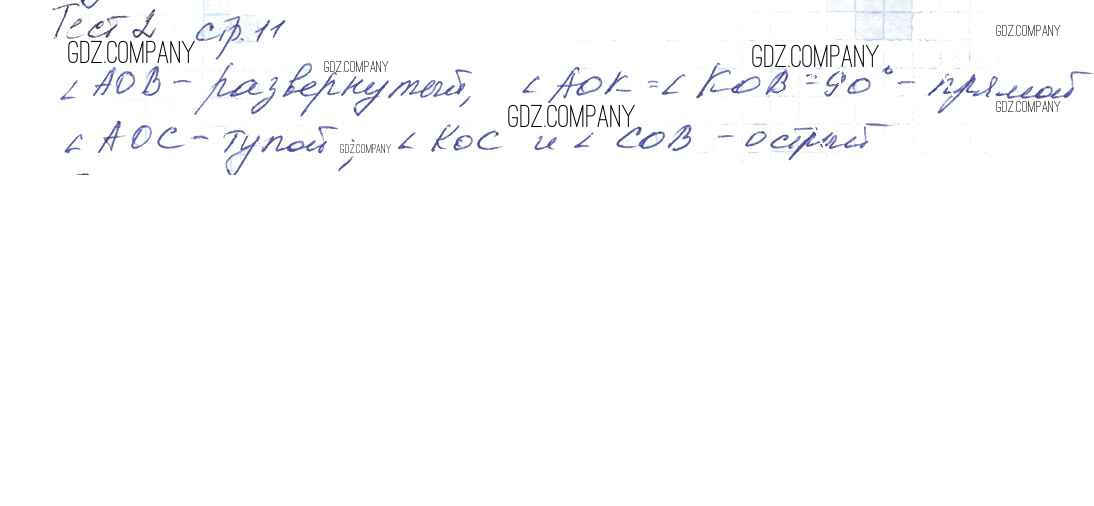 Тест 2 стр. 11
GDZ.COMPANY GDZ.COMPANY GDZ.COMPANY
GDZ.COMPANY
∠ AOB - развернутый, ∠ AOK = ∠ KOB = 90° - прямой
GDZ.COMPANY GDZ.COMPANY
∠ AOC - тупой; ∠ KOC и ∠ COB - острый
GDZ.COMPANY